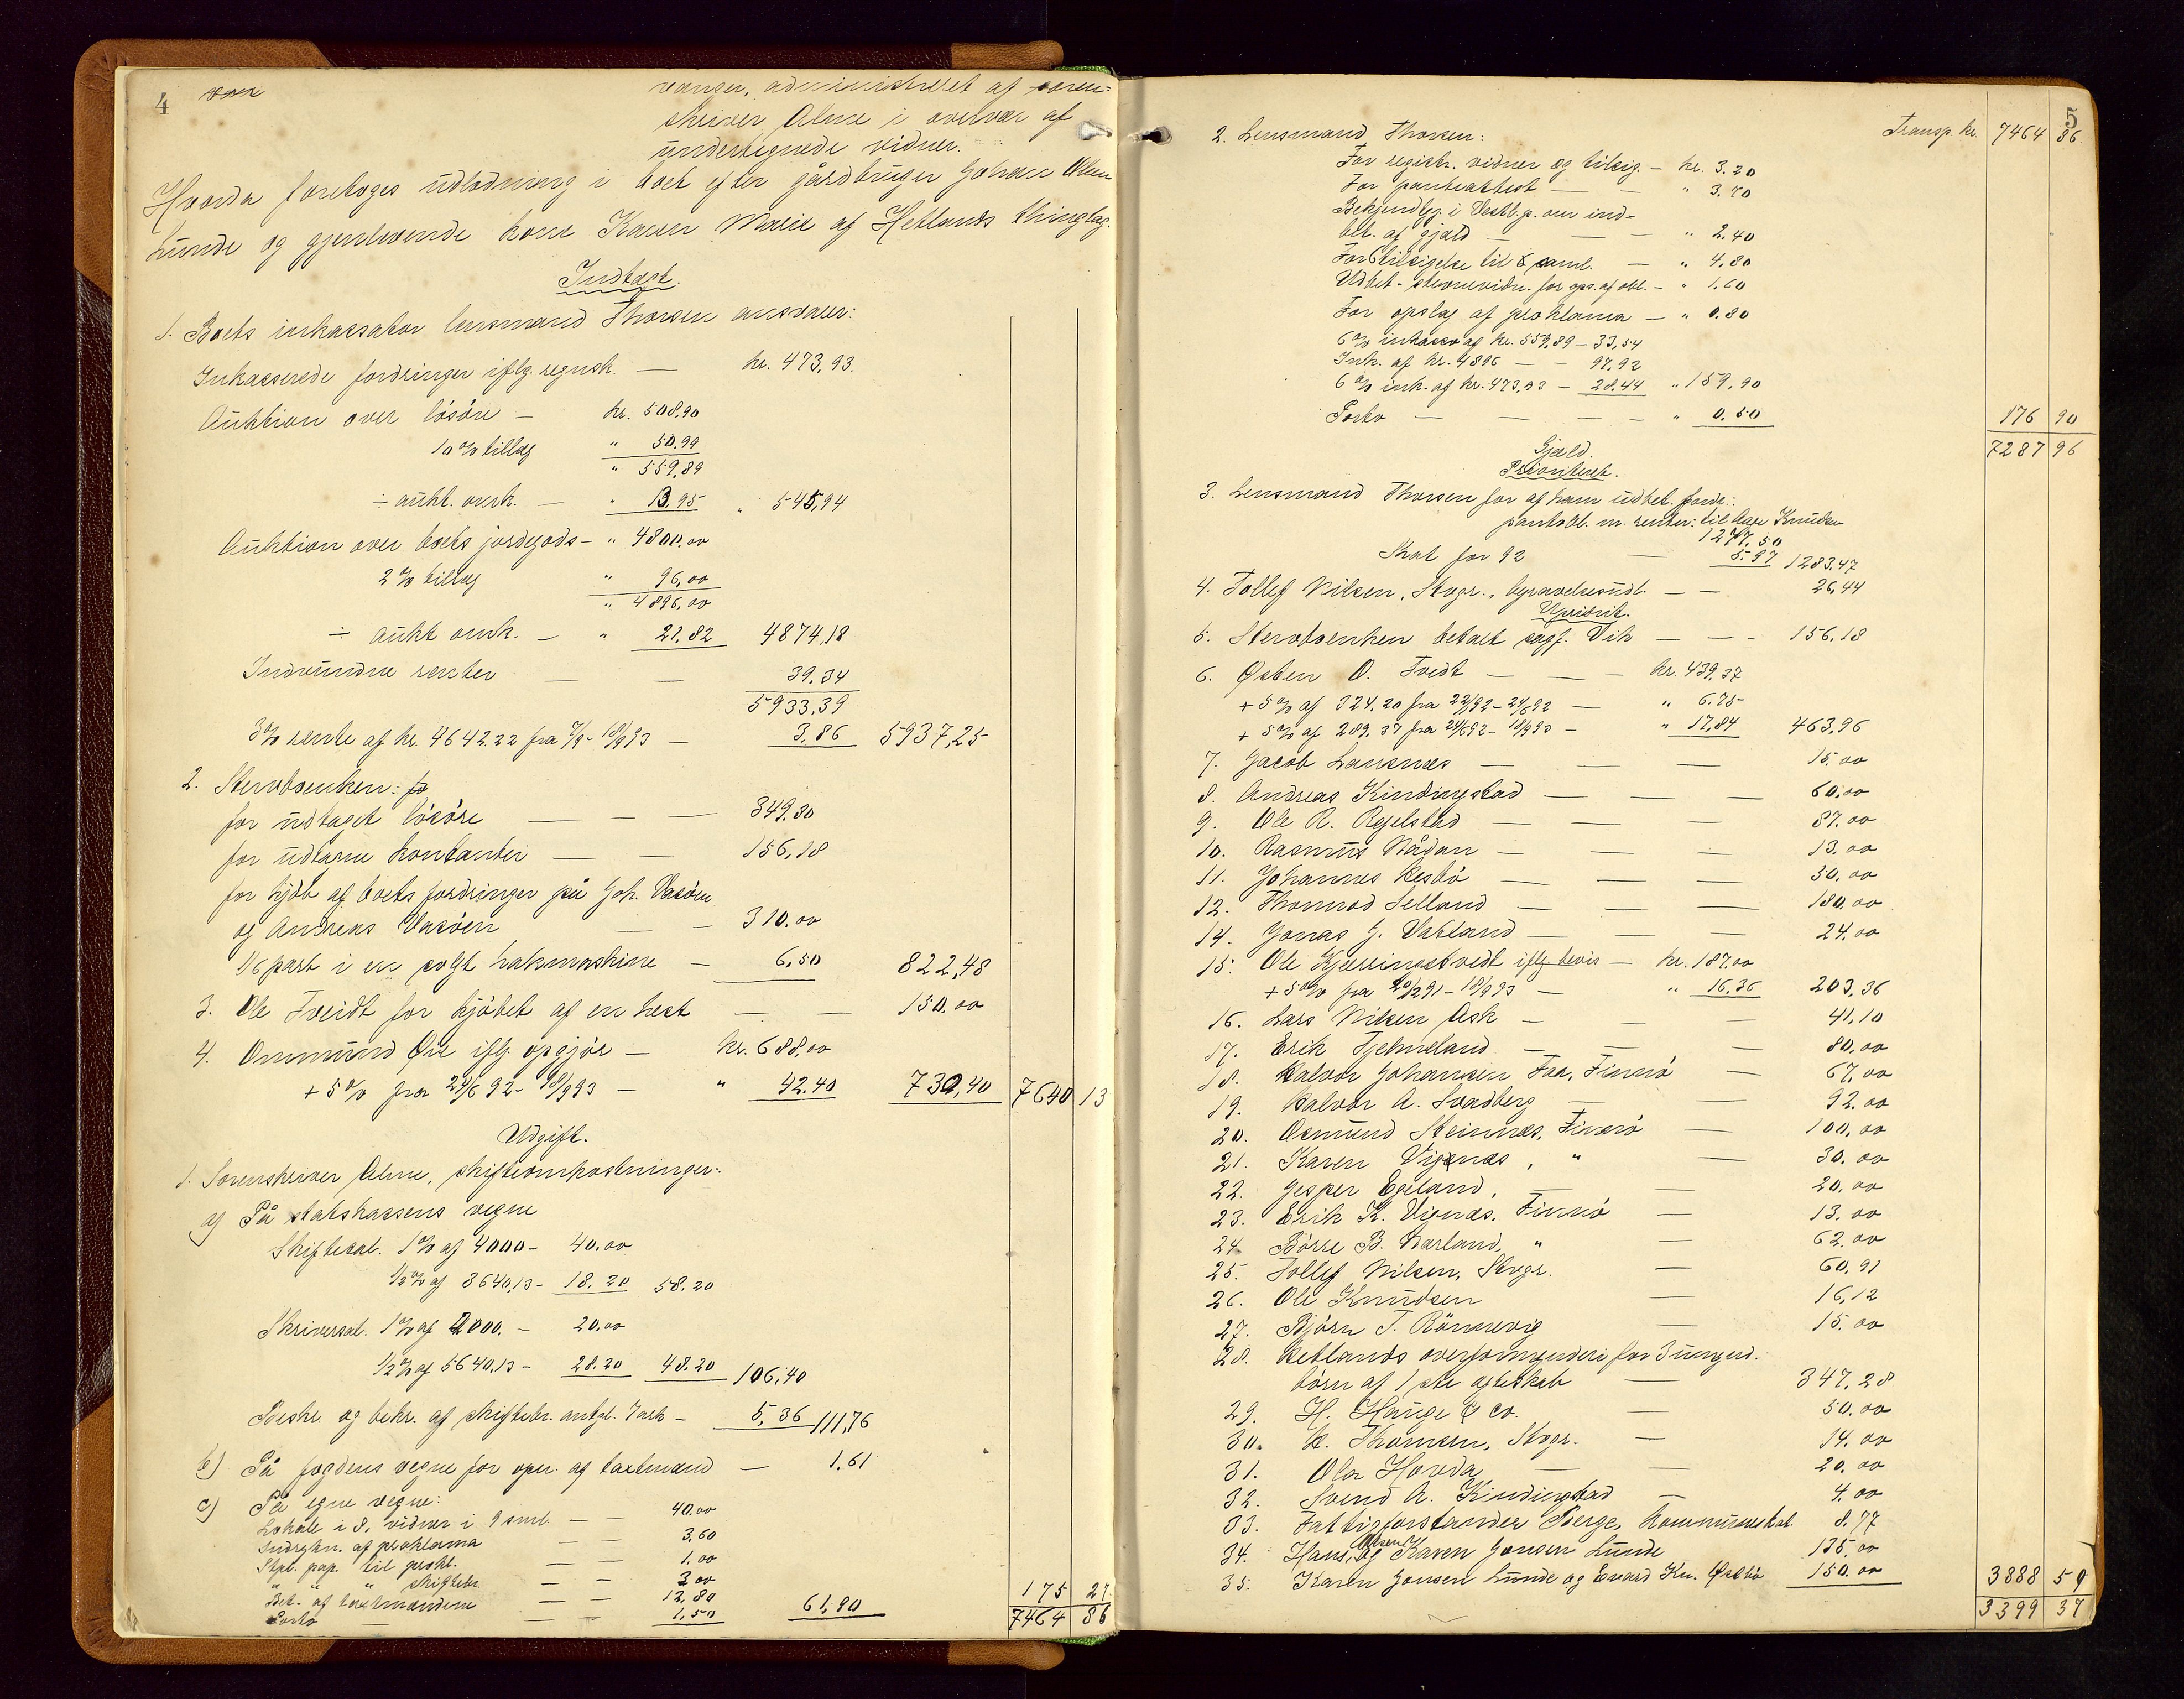 4
vanger, administreret af soren-
skriver Alme i overvær af
undertegnede vidner.
Hvorda foretoges udlodning i boet efter gårdbruger Johan Olsen
Lunde og gjenlevende kone Karen Marie af Hetlands thinglag.
Indtægt.
1. Boets inkassator lensmand Thorsen ansvarer:
Inkasserede fordringer iflg. regnsk. — kr. 473,93.
Auktion over løsøre — kr. 508,90
10 % tillæg " 50,99
" 559,89
÷ aukt. omk. — " 13,95 " 545,94
Auktion over boets jordegods — " 4800,00
2 % tillæg " 96,00
" 4896,00
÷ aukt omk. — " 21,82 4874,18
Indvundne renter — — 39.34
5933,39
3 % rente af kr. 4642.22 fra 7/9 - 18/9 93 — 3,86 5937,25
2. Stervboenken:
for udtaget løsøre — — — 349.80
for udtagne kontanter — — 156,18
for kjøb af boets fordringer på Joh. Vasøen
og Andreas Vasøen — — 310.00
1/6 part i en solgt hakmaskine — 6,50 822,48
3. Ole Tveidt for kjøbet af en hest — — 150,00
4. Ommund Øie iflg opgjør — kr. 688,00
+ 5 % fra 24/6 92 - 18/9 93 — " 42.40 730,40 7640 13
Udgift.
1. Sorenskriver Alme, skifteomkostninger:
a) På statskassens vegne
Skiftesal. 1 % af 4000 - 40.00
1/2 % af 3640,13 - 18.20 58.20
Skriversal. 1 % af 2000. - 20.00
1/2 % af 5640,13 - 28.20 48.20 106,40
Beskr. og bekr. af skiftebr. antgl. 7 ark — 5,36 111,76
b) På fogdens vegne for opn. af taxtmænd — 1.61
c) På egne vegne:
Lokale i 8, vidner i 9 saml. — — 40.00
Indrykn. af proklama — — 3,60
Stpl. pap. til prokl. — — 1.00
" " " skiftebr. — — 3 00
Bet. af taxtmændene — — 12,80
Porto — — 1,50 61,90 175 27
7464 86
5
Transp. kr. 7464 86
2. Lensmand Thorsen:
For registr. vidner og tilsig. — kr. 3.20
For panteattest — — " 3.70
Bekjendtg. i Vestl.p. om ind-
bet. af gjæld — — — " 2.40
For 6 tilsigelse til 8 saml. — " 4,80
Udbet. stevnevidn. for ops. af obl. — " 1.60
For opslag af proklama — " 0.80
6 % inkasso af kr. 559,89 — 33,54
Ink. af kr. 4896 — — 97,92
6 % ink. af kr. 473,93 — 28,44 " 159,90
Porto — — — — " 0.50 176 90
7287 96
Gjæld.
Prioriteret.
3. Lensmand Thorsen for af ham udbet. fordr.:
pantobl. m. renter: til Aage Knudsen
1277.50
Skat for 92 — 5.97 1283.47
4. Tollef Nilsen, Stvgr., begravelsesudl. — — 26,44
Uprivit.
5. Stervboenken betalt sagf. Vik — — — 156,18
6. Østen O. Tvedt — — — kr. 439,37
+ 5 % af 324,20 fra 22/1 92 - 24/6 92 — " 6.75
+ 5 % af 289.37 fra 24/6 92 - 18/9 93 — " 17,84 463,96
7. Jacob Lausnæs — — — 15.00
8. Andreas Kindingstad — — — 60,00
9. Ole R. Regelstad — — — 87.00
10. Rasmus Nådan — — — 13.00
11. Johannes Resbø — — — 30.00
12. Thomrod Selland — — — 180.00
14. Jonas G. Vatland — — — 24.00
15. Ole Kjerringtvedt iflg. bevis — kr. 187,00
+ 5 % fra 20/12 91 - 18/9 93 — " 16,36 203,36
16. Lars Nilsen Ask — — — 41,10
17. Erik Tjelmeland — — — 80,00
18. Halvor Johansen Faa, Finnø — 67,00
19. Halvor A. Svadberg — — 92.00
20. Osmund Steinnæs, Finnø — 100,00
21. Karen Vignæs, " — 30.00
22. Jesper Egeland, — — 20,00
23. Erik K. Vignæs, Finnø — 13.00
24. Børre B. Narland, " — 62.00
25. Tollef Nilsen, Stvgr. — 60,91
26. Ole Knudsen — 16,12
27. Bjørn T. Rønnevig — 15.00
28. Hetlands overformynderi for 3 umynd.
børn af 1ste ægteskab — 347,28
29. H. Hauge & Co. — 50.00
30. H. Thomsen, Stvgr. — 14.00
31. Ola Hovda — — 20.00
32. Svend A. Kindingstad — 4.00
33. Fattigforstander Berge, kommuneskat 8.77
34. Hans Olsen og Karen Jonsen Lunde 135,00
35. Karen Jonsen Lunde og Evard Kn. Østbø 150.00 3888 59
3399 37